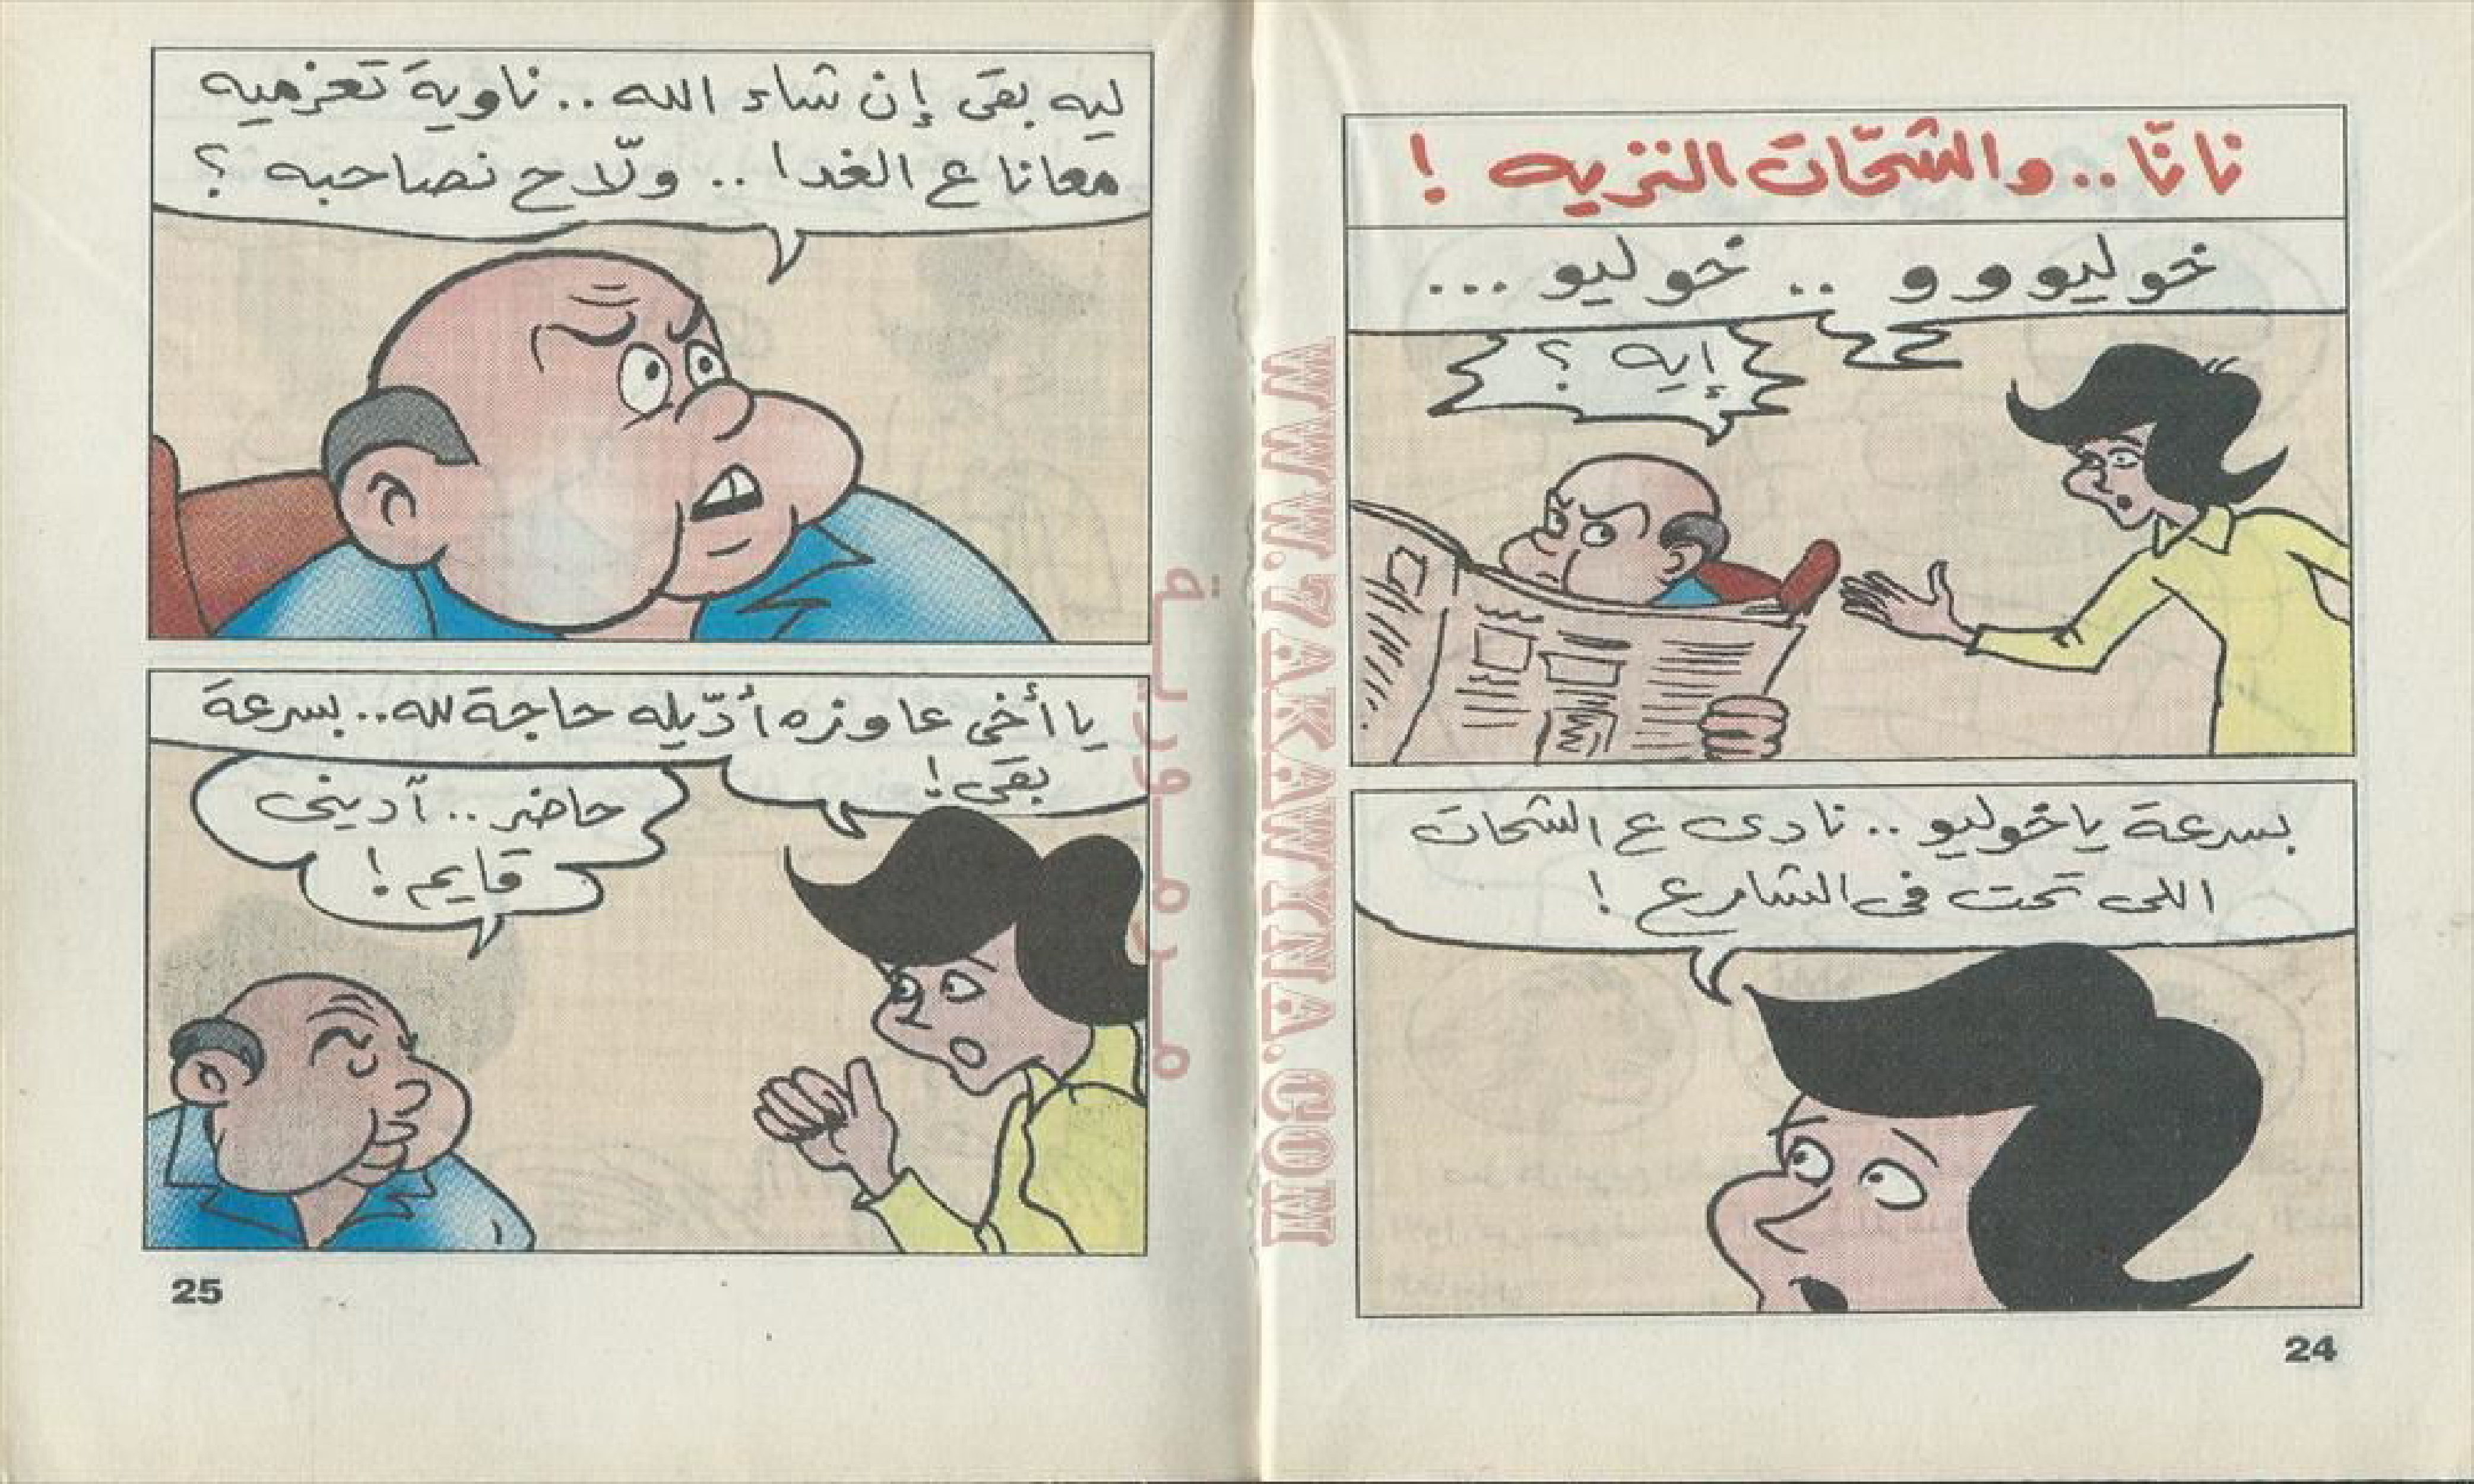 نانّا.. والشحّات النزيه !
خوليو و و .. خوليو ...
إيه ؟
بسرعة ياخوليو .. نادى ع الشحات
اللى تحت فى الشارع !
24
ليه بقى إن شاء الله .. ناوية تعزميه
معانا ع الغدا .. ولّا ح نصاحبه ؟
يا أخى عاوزه أدّيله حاجة لله .. بسرعة
بقى !
حاضر .. آدينى
قايم !
25
WWW.7AKAWYNA.COM